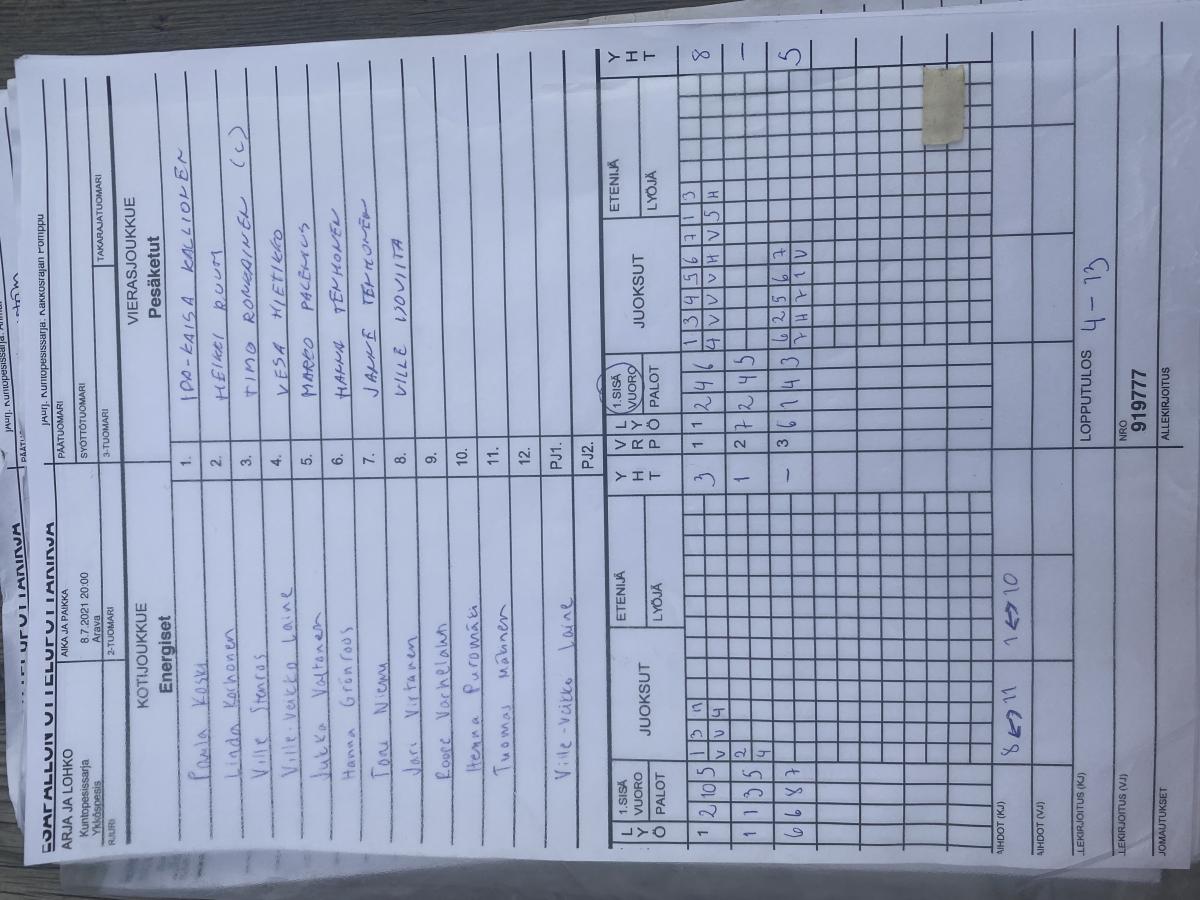 ESÄPALLON OTTELUPÖYTÄKIRJA
ARJA JA LOHKO
Kuntopesissarja
Ykköspesis
AIKA JA PAIKKA
8.7.2021 20:00
Arava
PÄÄTUOMARI
SYÖTTÖTUOMARI
2-TUOMARI
3-TUOMARI
TAKARAJATUOMARI
KOTIJOUKKUE
Energiset
VIERASJOUKKUE
Pesäketut
Paula Koski
1. IDA-KAISA KALLIONEN
Linda Korhonen
2. HEIKKI RUUTI
Ville Stenros
3. TIMO RONKAINEN (C)
Ville-Veikko Laine
4. VESA HIETIKKO
Jukka Valtonen
5. MARKO PALENIUS
Hanna Grönroos
6. HANNA TENHONEN
Toni Niemi
7. JANNE TENHONEN
Jari Virtanen
8. VILLE
Roope Varhelahti
9.
Henna Puromäki
10.
Tuomas
11.
12.
Ville-Veikko Laine
PJ1.
PJ2.
LYÖ 1.SISÄ VUORO PALOT JUOKSUT ETENIJÄ LYÖJÄ YHT VRP LYÖ 1.SISÄ VUORO PALOT JUOKSUT ETENIJÄ LYÖJÄ YHT
1 2 10 5 1 3 11 3 1 1 2 4 6 1 3 4 5 6 7 1 3 8
V V 4 4 V V V H V 5 H
1 1 3 5 2 1 2 7 2 4 5 –
4
6 6 8 7 – 3 6 1 4 3 6 2 5 6 7 5
7 H 7 1 V
AIHDOT (KJ) 8 ↔ 11 1 ↔ 10
AIHDOT (VJ)
LEKIRJOITUS (KJ)
LOPPUTULOS 4 – 13
LEKIRJOITUS (VJ)
NRO
919777
JOMAUTUKSET
ALLEKIRJOITUS